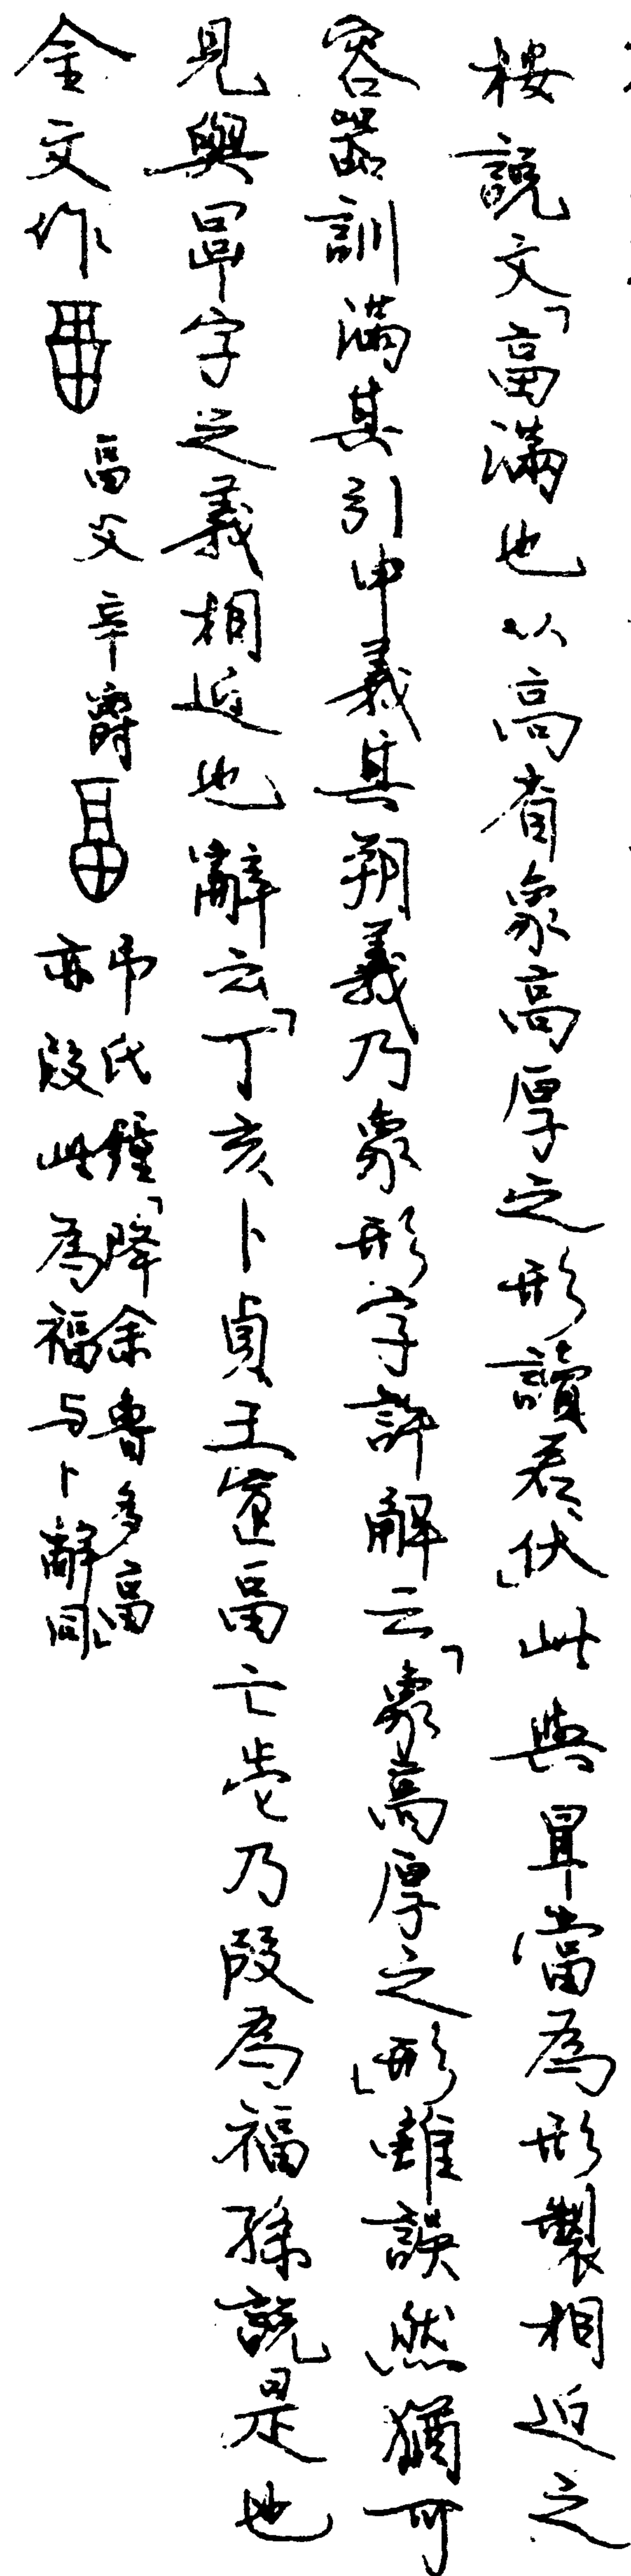 按說文「畐滿也从高省象高厚之形讀若伏」此與㫗當為形製相近之
容器訓滿其引申義其朔義乃象形字許解云「象高厚之形」雖誤然猶可
見與㫗字之義相近也辭云「丁亥卜貞王賓畐亡𡆥乃叚為福孫說是也
金文作 畐父辛爵 弔氏鐘「降余魯多畐」亦叚此為福与卜辭同